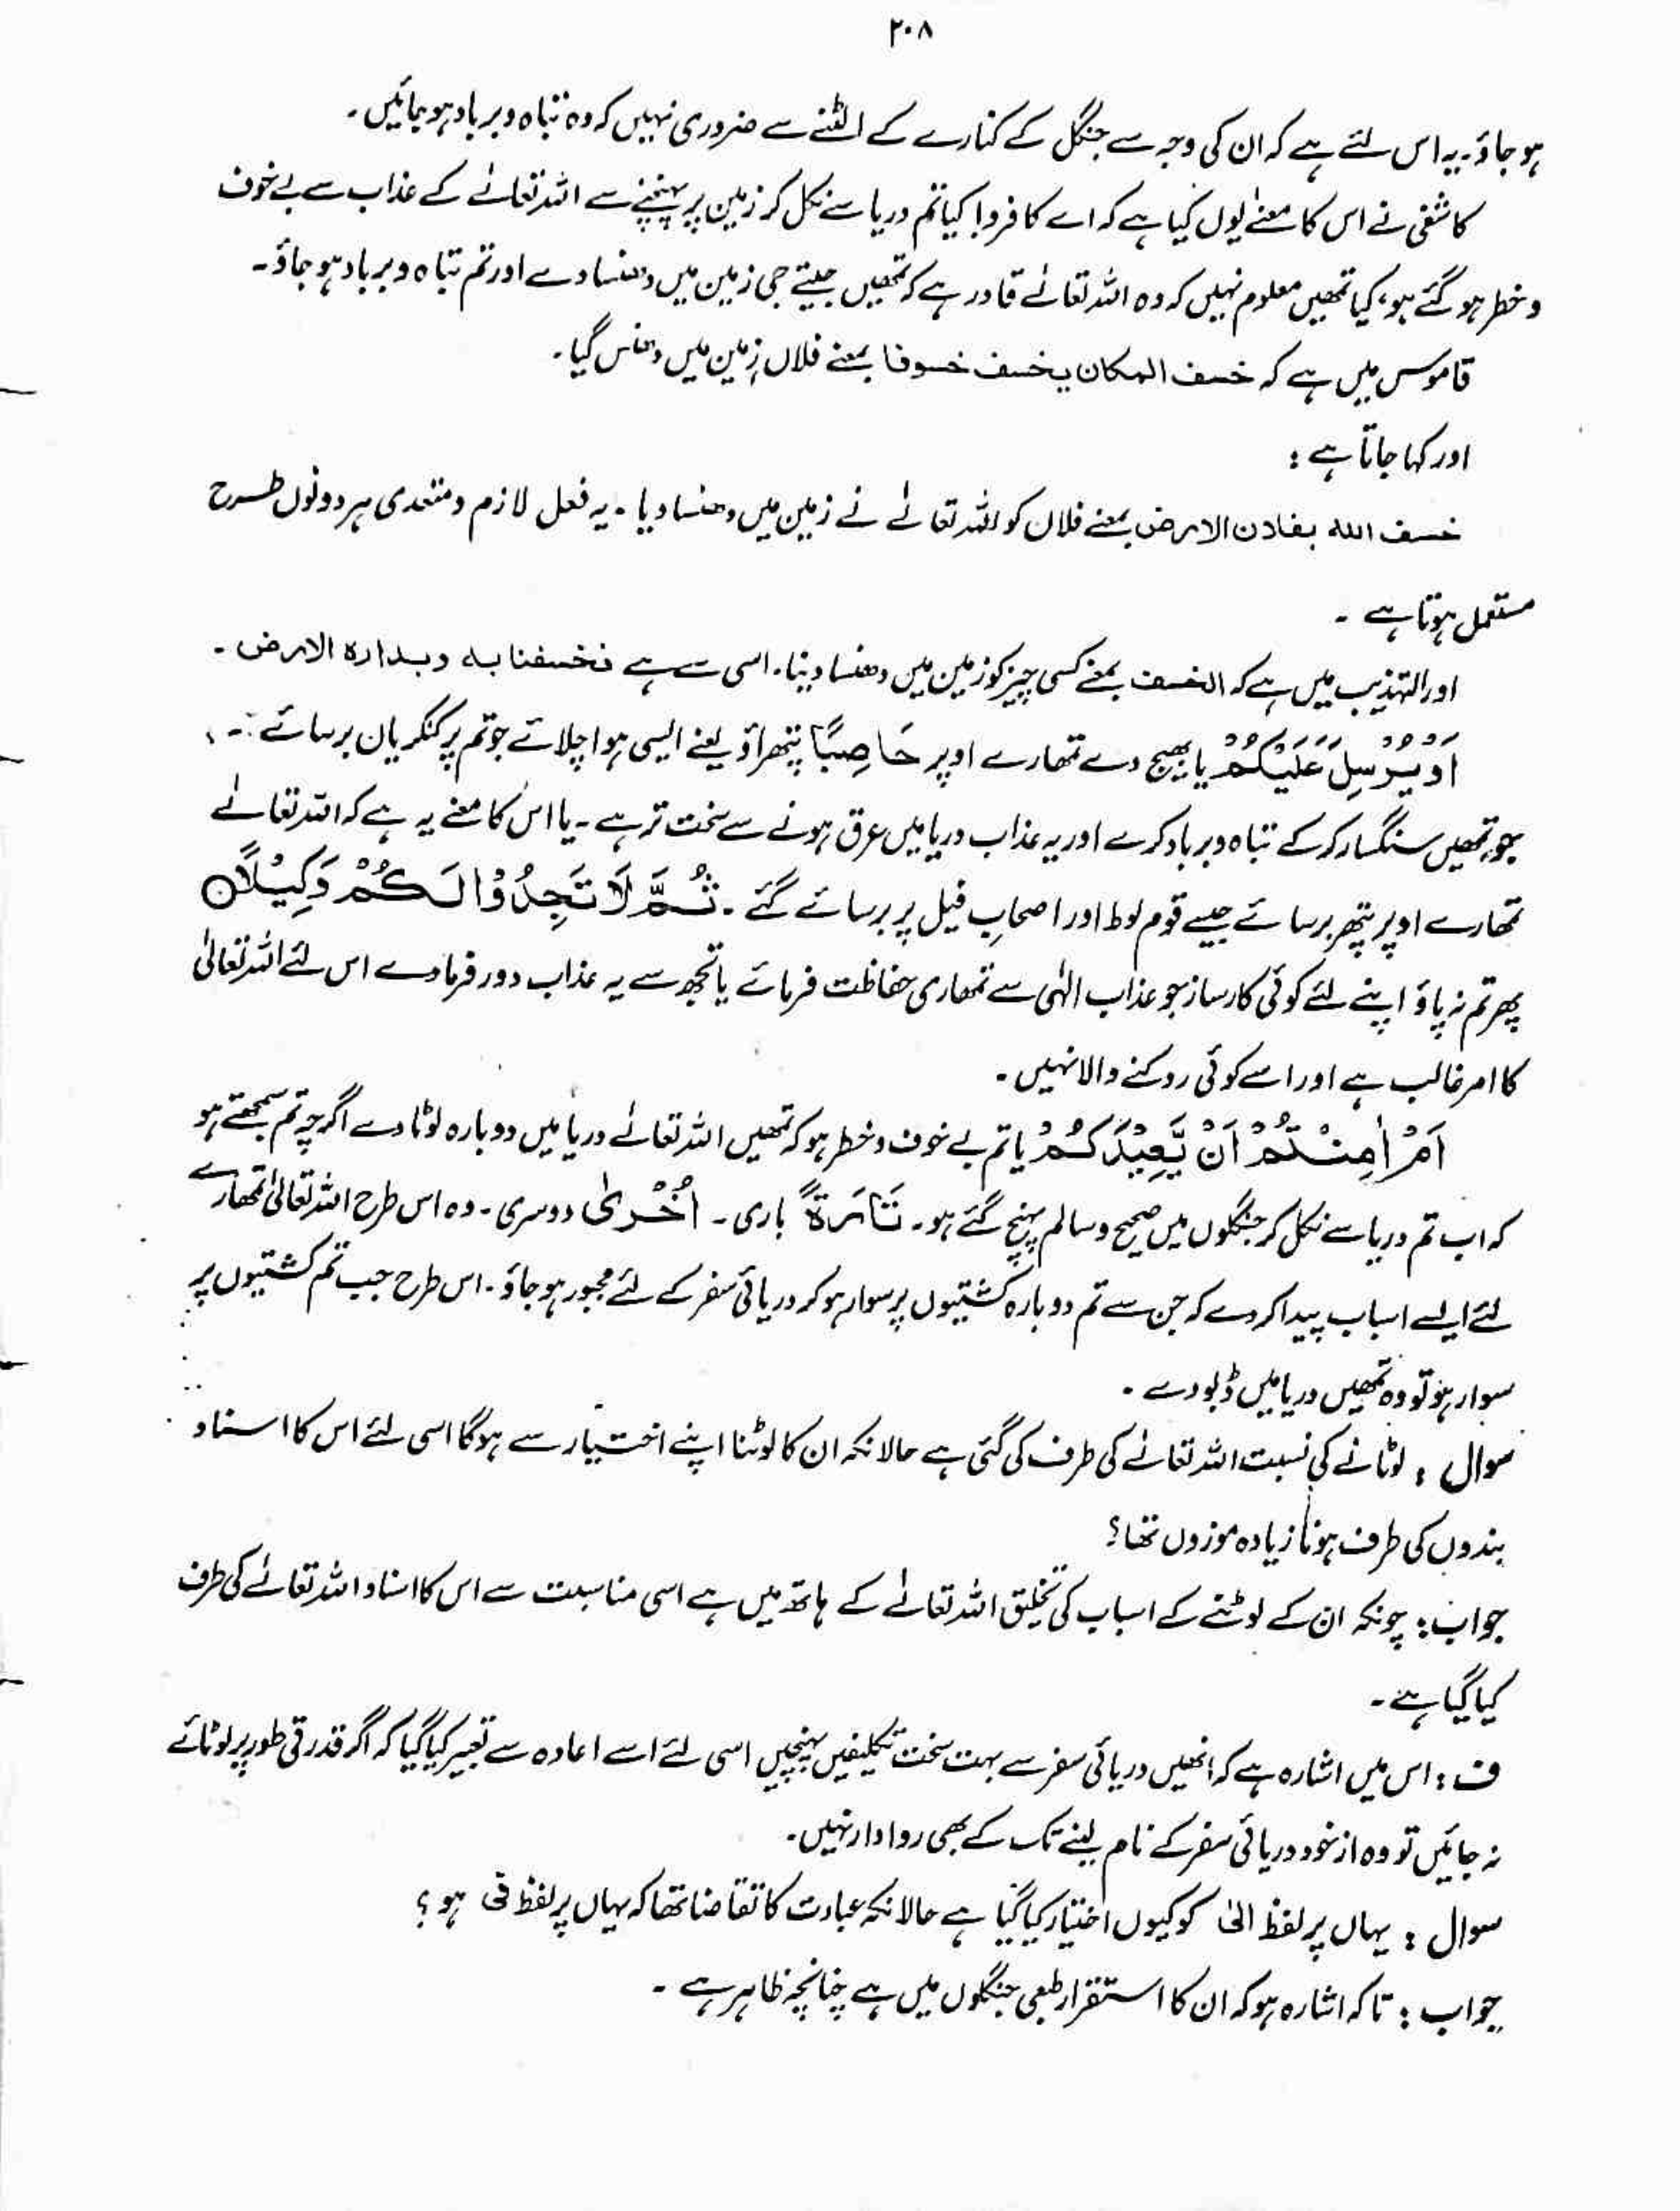 ۲۰۸
ہو جاؤ۔ یہ اس لئے ہے کہ ان کی وجہ سے جنگل کے کنارے کے الٹنے سے ضروری نہیں کہ وہ تباہ و برباد ہو جائیں۔
کاشفی نے اس کا معنےٰ یوں کیا ہے کہ اے کافرو! کیا تم دریا سے نکل کر زمین پر پہنچنے سے اللہ تعالےٰ کے عذاب سے بے خوف
و خطر ہو گئے ہو، کیا تمھیں معلوم نہیں کہ وہ اللہ تعالےٰ قادر ہے کہ تمھیں جیتے جی زمین میں دھنسا دے اور تم تباہ و برباد ہو جاؤ۔
قاموس میں ہے کہ خسف المکان یخسف خسوفا بمعنے فلاں زمین میں دھنس گیا۔
اور کہا جاتا ہے :
خسف اللہ بفلان الارض بمعنے فلاں کو اللہ تعالےٰ نے زمین میں دھنسا دیا ۔ یہ فعل لازم و متعدی ہر دونوں طرح
مستعمل ہوتا ہے ۔
اور التہذیب میں ہے کہ الخسف بمعنے کسی چیز کو زمین میں دھنسا دینا۔ اسی سے ہے فخسفنا بہ و بدارہ الارض ۔
اَوْ یُرْسِلَ عَلَیْکُمْ یا بھیج دے تمھارے اوپر حَاصِبًا پتھراؤ یعنے ایسی ہوا چلائے جو تم پر کنکریاں برسائے ۔
جو تمھیں سنگسار کر کے تباہ و برباد کرے اور یہ عذاب دریا میں غرق ہونے سے سخت تر ہے ۔ یا اس کا معنے یہ ہے کہ اللہ تعالےٰ
تمھارے اوپر پتھر برسائے جیسے قوم لوط اور اصحابِ فیل پر برسائے گئے ۔ ثُمَّ لَا تَجِدُوْا لَکُمْ وَکِیْلًا ۝
پھر تم نہ پاؤ اپنے لئے کوئی کارساز جو عذاب الٰہی سے تمھاری حفاظت فرمائے یا تجھ سے یہ عذاب دور فرما دے اس لئے اللہ تعالیٰ
کا امر غالب ہے اور اسے کوئی روکنے والا نہیں ۔
اَمْ اَمِنْتُمْ اَنْ یُّعِیْدَکُمْ یا تم بے خوف و خطر ہو کہ تمھیں اللہ تعالےٰ دریا میں دوبارہ لوٹا دے اگرچہ تم سمجھتے ہو
کہ اب تم دریا سے نکل کر جنگلوں میں صحیح و سالم پہنچ گئے ہو ۔ تَارَۃً باری ۔ اُخْرٰی دوسری ۔ وہ اس طرح اللہ تعالیٰ تمھارے
لئے ایسے اسباب پیدا کر دے کہ جن سے تم دوبارہ کشتیوں پر سوار ہو کر دریائی سفر کے لئے مجبور ہو جاؤ ۔ اس طرح جب تم کشتیوں پر
سوار ہو تو وہ تمھیں دریا میں ڈبو دے ۔
سوال : لوٹانے کی نسبت اللہ تعالےٰ کی طرف کی گئی ہے حالانکہ ان کا لوٹنا اپنے اختیار سے ہوگا اسی لئے اس کا اسناد
بندوں کی طرف ہونا زیادہ موزوں تھا ؟
جواب : چونکہ ان کے لوٹنے کے اسباب کی تخلیق اللہ تعالےٰ کے ہاتھ میں ہے اسی مناسبت سے اس کا اسناد اللہ تعالےٰ کی طرف
کیا گیا ہے ۔
ف : اس میں اشارہ ہے کہ انھیں دریائی سفر سے بہت سخت تکلیفیں پہنچیں اسی لئے اسے اعادہ سے تعبیر کیا گیا کہ اگر قدرتی طور پر لوٹائے
نہ جائیں تو وہ از خود دریائی سفر کے نام لینے تک کے بھی روادار نہیں ۔
سوال : یہاں پر لفظ الیٰ کو کیوں اختیار کیا گیا ہے حالانکہ عبارت کا تقاضا تھا کہ یہاں پر لفظ فی ہو ؟
جواب : تا کہ اشارہ ہو کہ ان کا استقرار طبعی جنگلوں میں ہے چنانچہ ظاہر ہے ۔